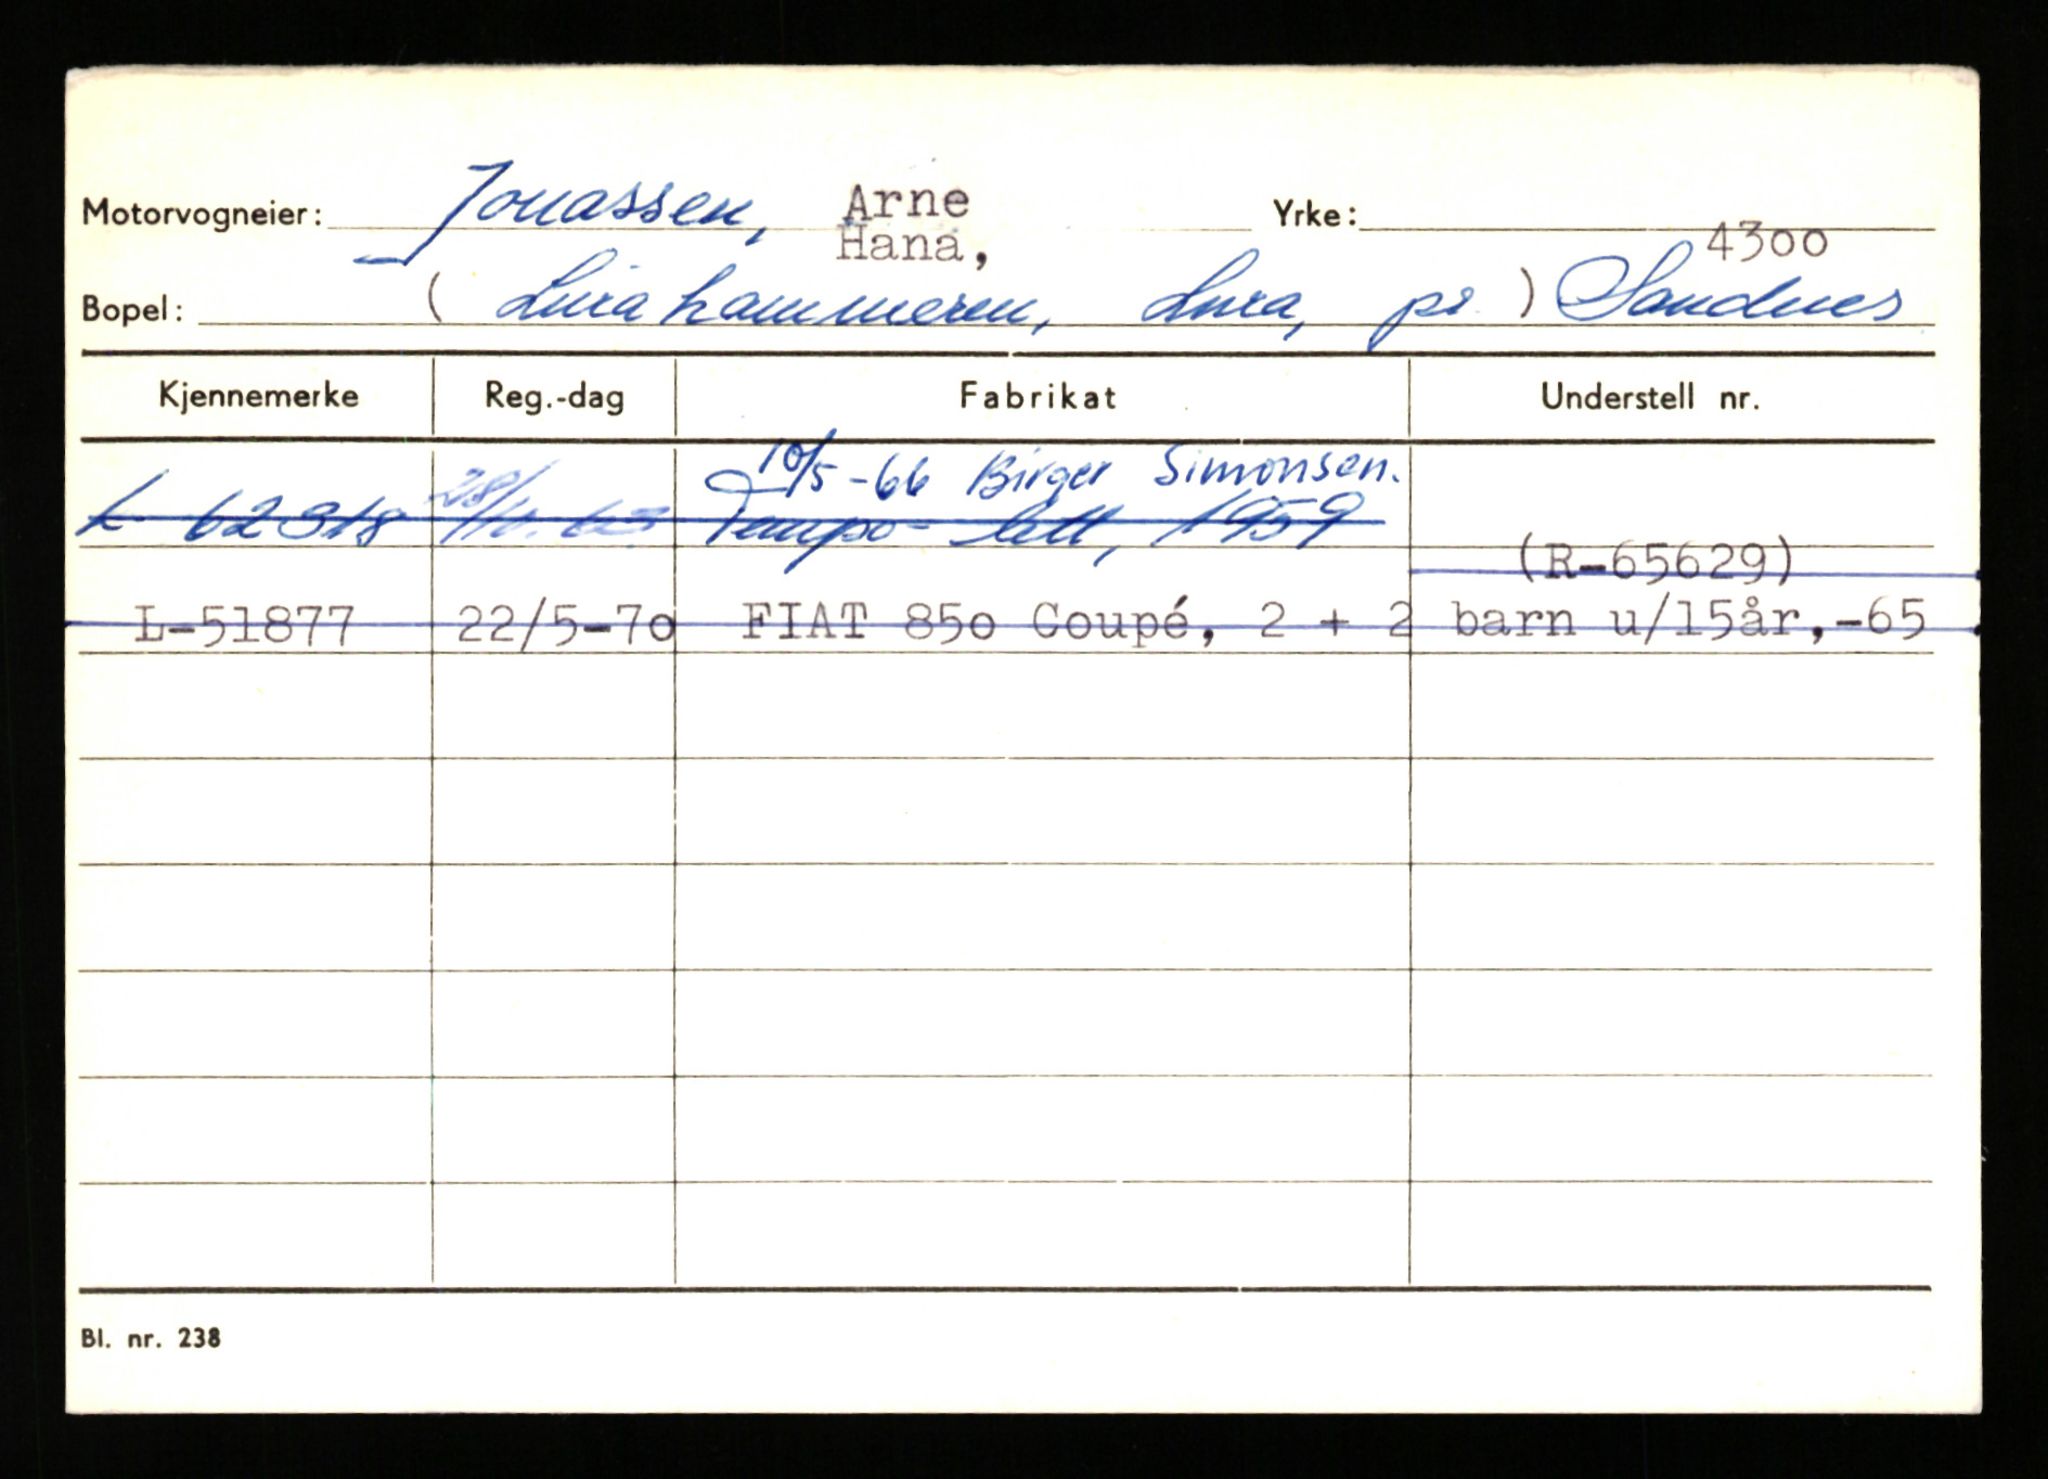 Motorvogneier: Jonassen, Arne Yrke:
Hana, 4300
Bopel: ( Lurahammeren, Lura, pr. ) Sandnes
Kjennemerke Reg.-dag Fabrikat Understell nr.
10/5-66 Birger Simonsen.
L 62318 28/ 63 Tempo-lett, 1959
(R-65629)
L-51877 22/5-7o FIAT 85o Coupé, 2 + 2 barn u/15år,-65
Bl. nr. 238